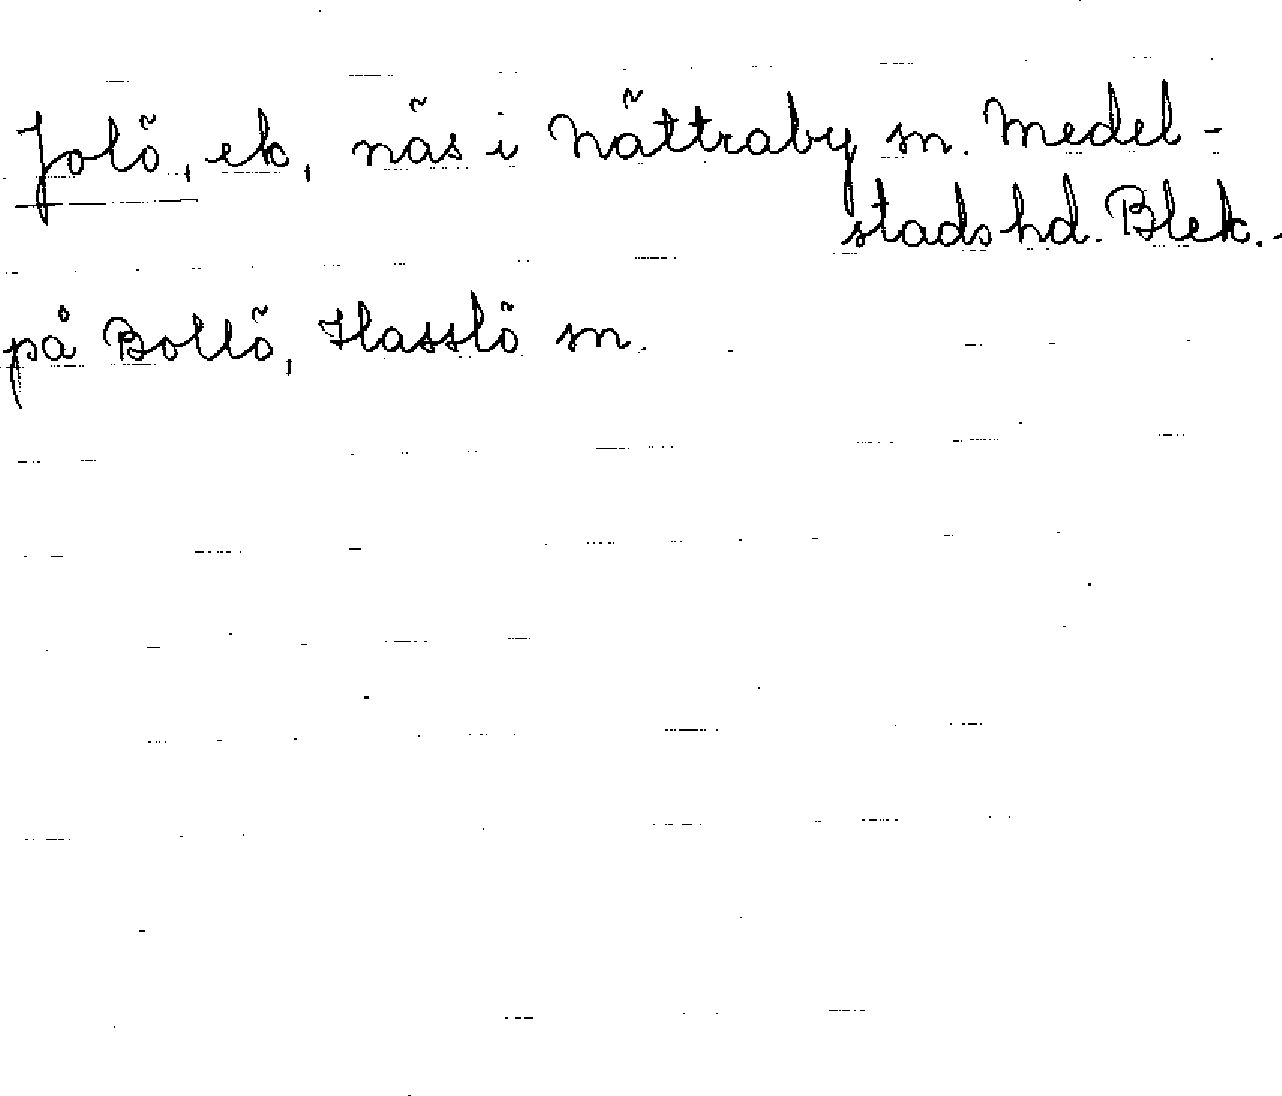 Jolö, ek, näs i Nättraby sn. Medel-
stads hd. Blek.
på Bollö, Hasslö sn.